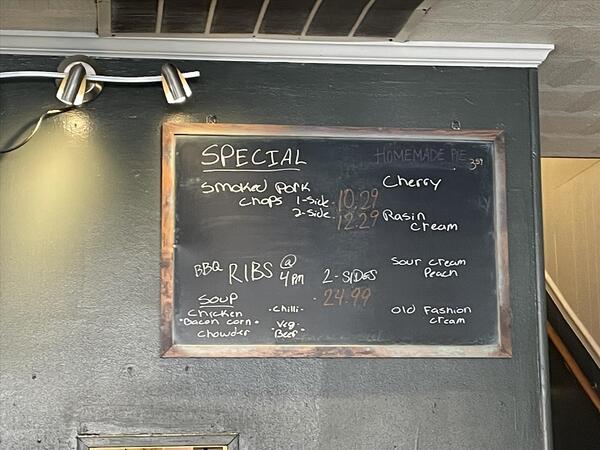 SPECIAL
Smoked Pork
Chops 1-Side. 10.29
2-side. 12.29
BBQ RIBS @ 4pm 2-SIDES
24.99
Soup
Chicken
"Bacon corn"
Chowder
-Chilli-
-Veg-
-Beef-
HOMEMADE PIE
Cherry
Rasin
Cream
Sour Cream
Peach
Old Fashion
Cream